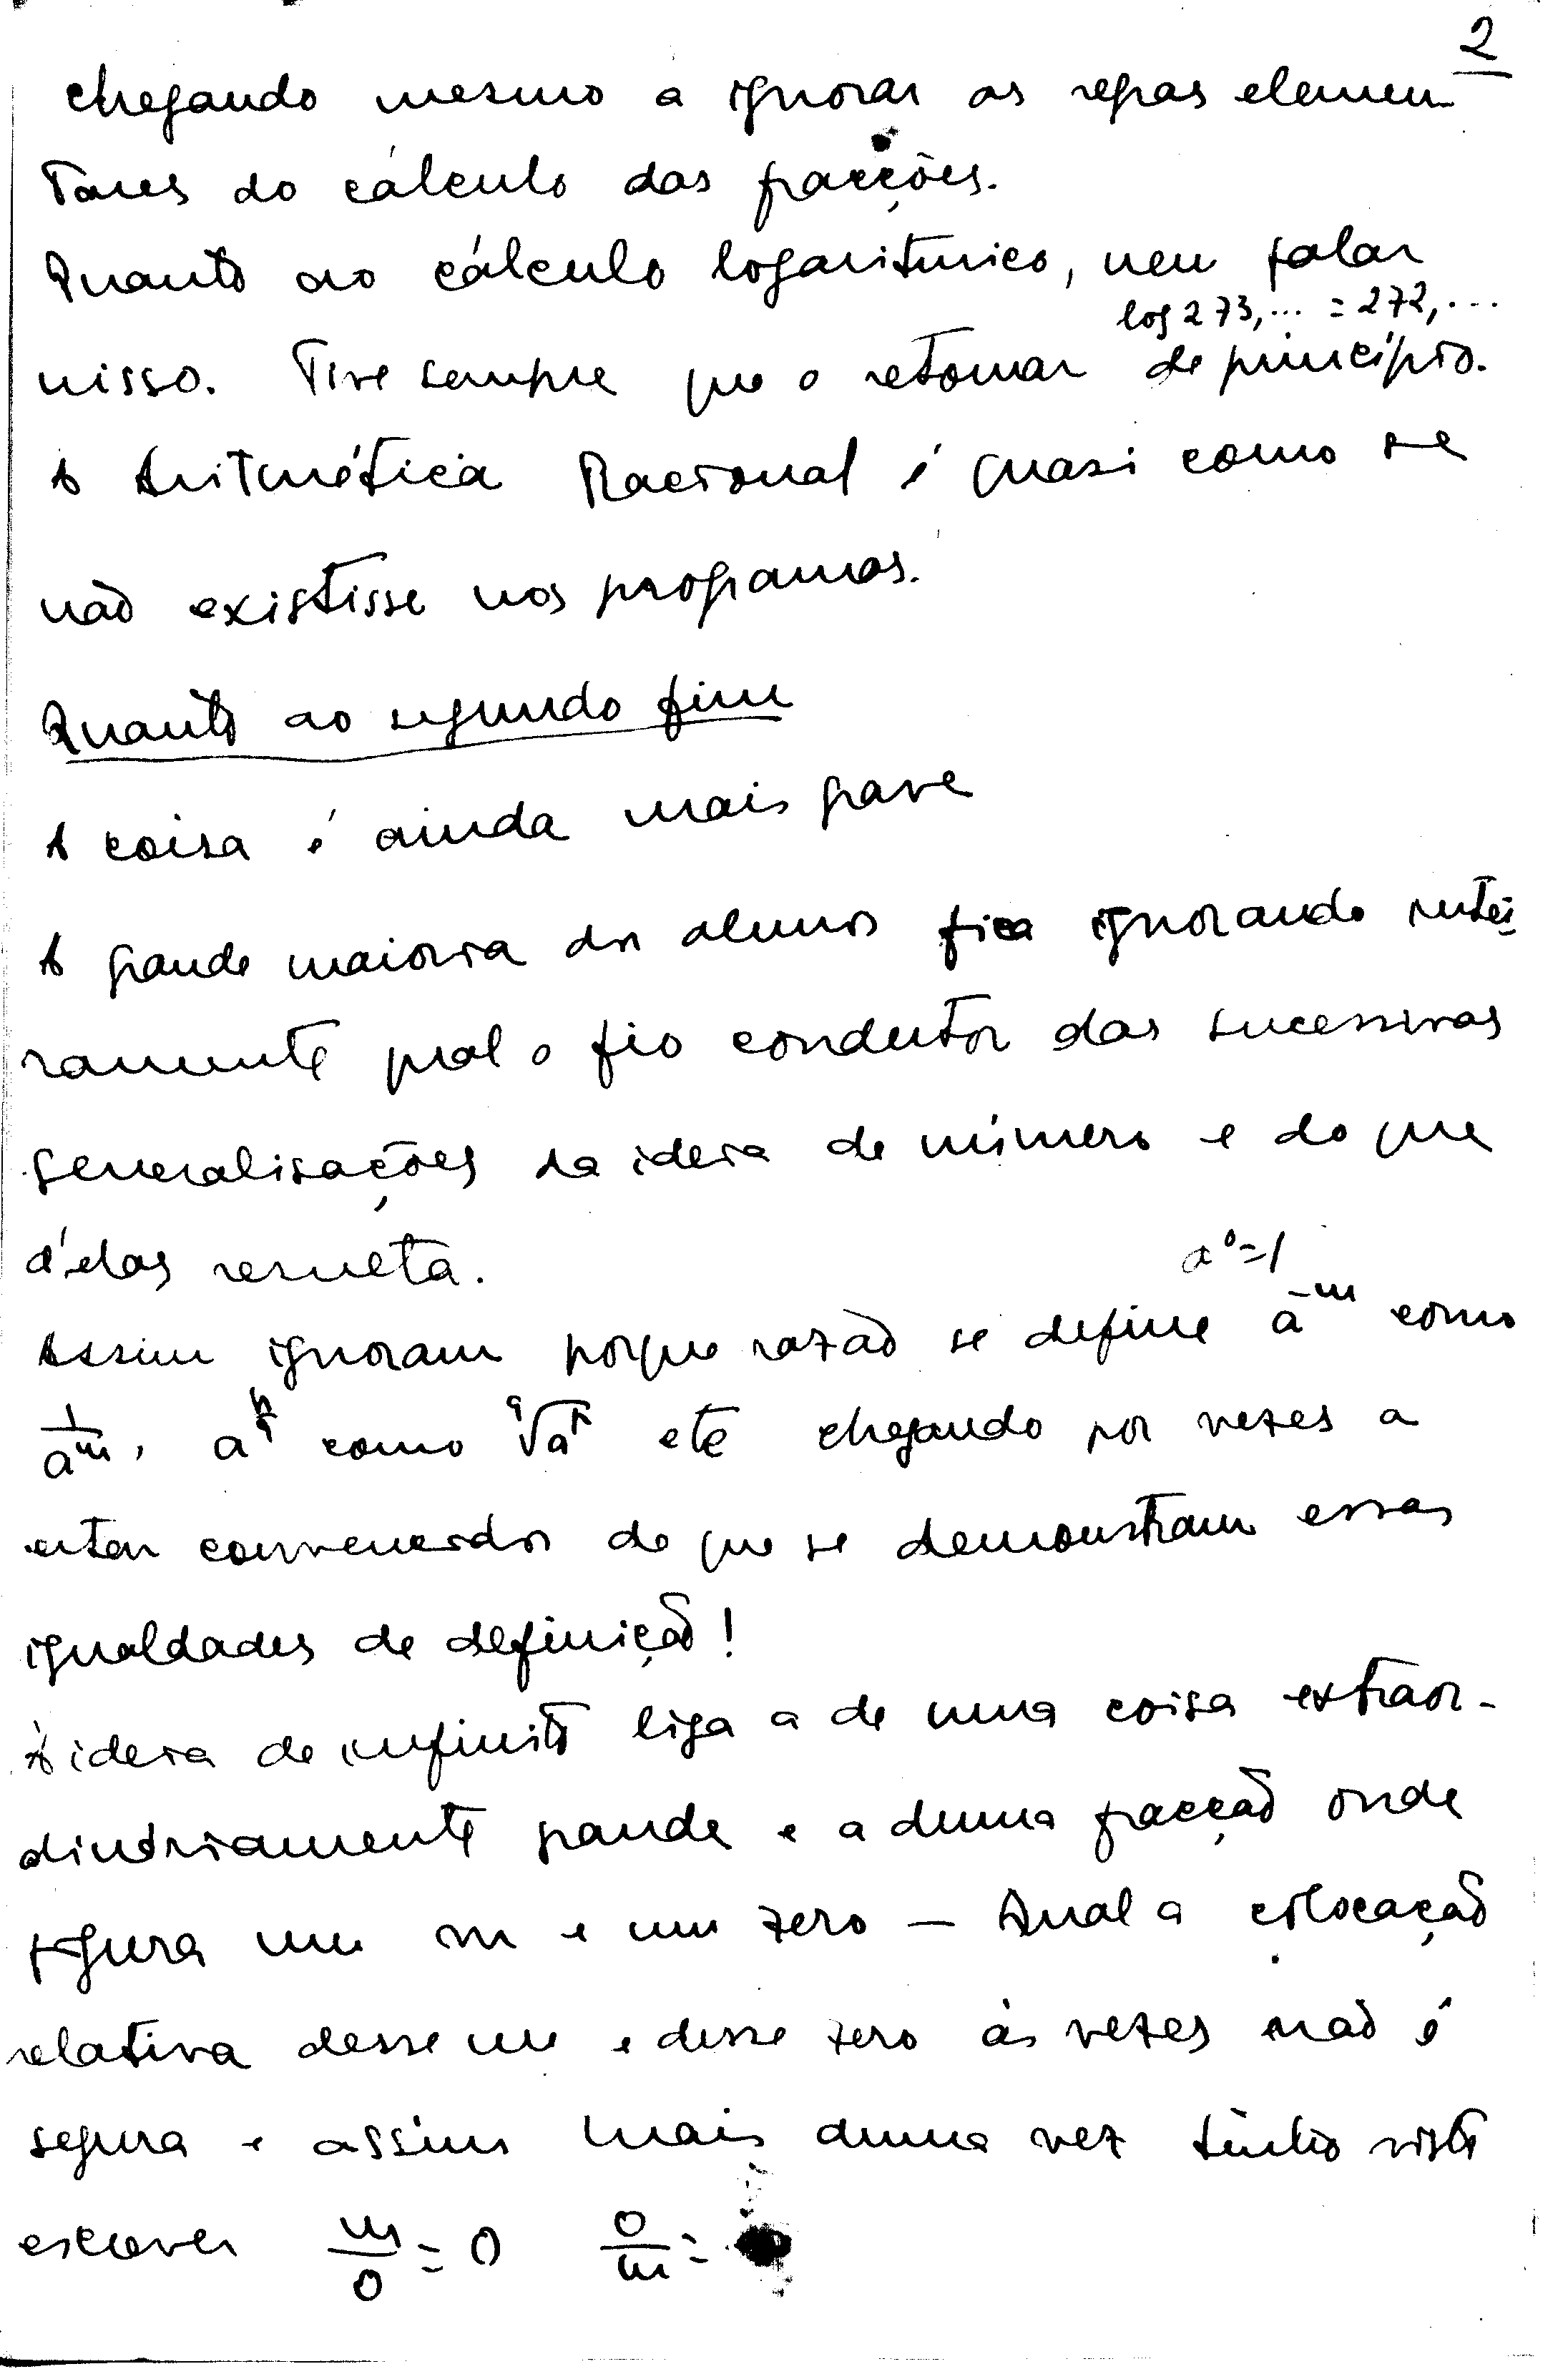 2
chegando mesmo a ignorar as regras elemen-
tares do cálculo das fracções.
Quanto ao cálculo logaritmico, nem falar
log 273,... = 272,...
nisso. Tive sempre que o retomar de princípio.
A Aritmética Racional é quasi como se
não existisse nos programas.
Quanto ao segundo fim
A coisa é ainda mais grave
A grande maioria dos alunos fica ignorando intei-
ramente qual o fio condutor das sucessivas
generalisações da ideia de número e do que
d'elas resulta.
a⁰=1
Assim ignoram porque razão se define a⁻ᵐ como
1/aᵐ, a^(p/q) como ᑫ√aᵖ etc chegando por vezes a
estar convencidos de que se demonstram essas
igualdades de definição!
A ideia de infinito liga a de uma coisa extraor-
dinàriamente grande e a duma fracção onde
figura um m e um zero — Qual a colocação
relativa desse m e desse zero às vezes não é
segura e assim mais duma vez tenho visto
escrever m/0 = 0 0/m =